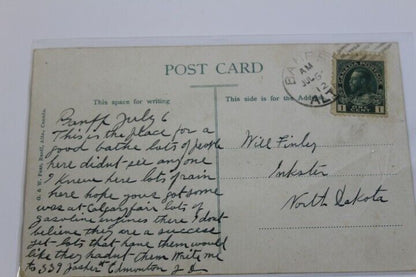 POST CARD
This space for writing
This side is for the Address
BANFF
AM
JUL 6
12
AL
CANADA POSTAGE
1 1
G. & W. Fear, Banff, Alta., Canada.
Banff July 6
This is the place for a
good bathe lots of people
here didnt see anyone
I knew here lots of rain
here hope your got some
was at Calgary fair lots of
gasoline engines there I dont
believe they are a success
yet - lots that have them would
like they hadnt - them Write me
to 339 Jasper Edmonton
Will Finley
Inkster
North Dakota